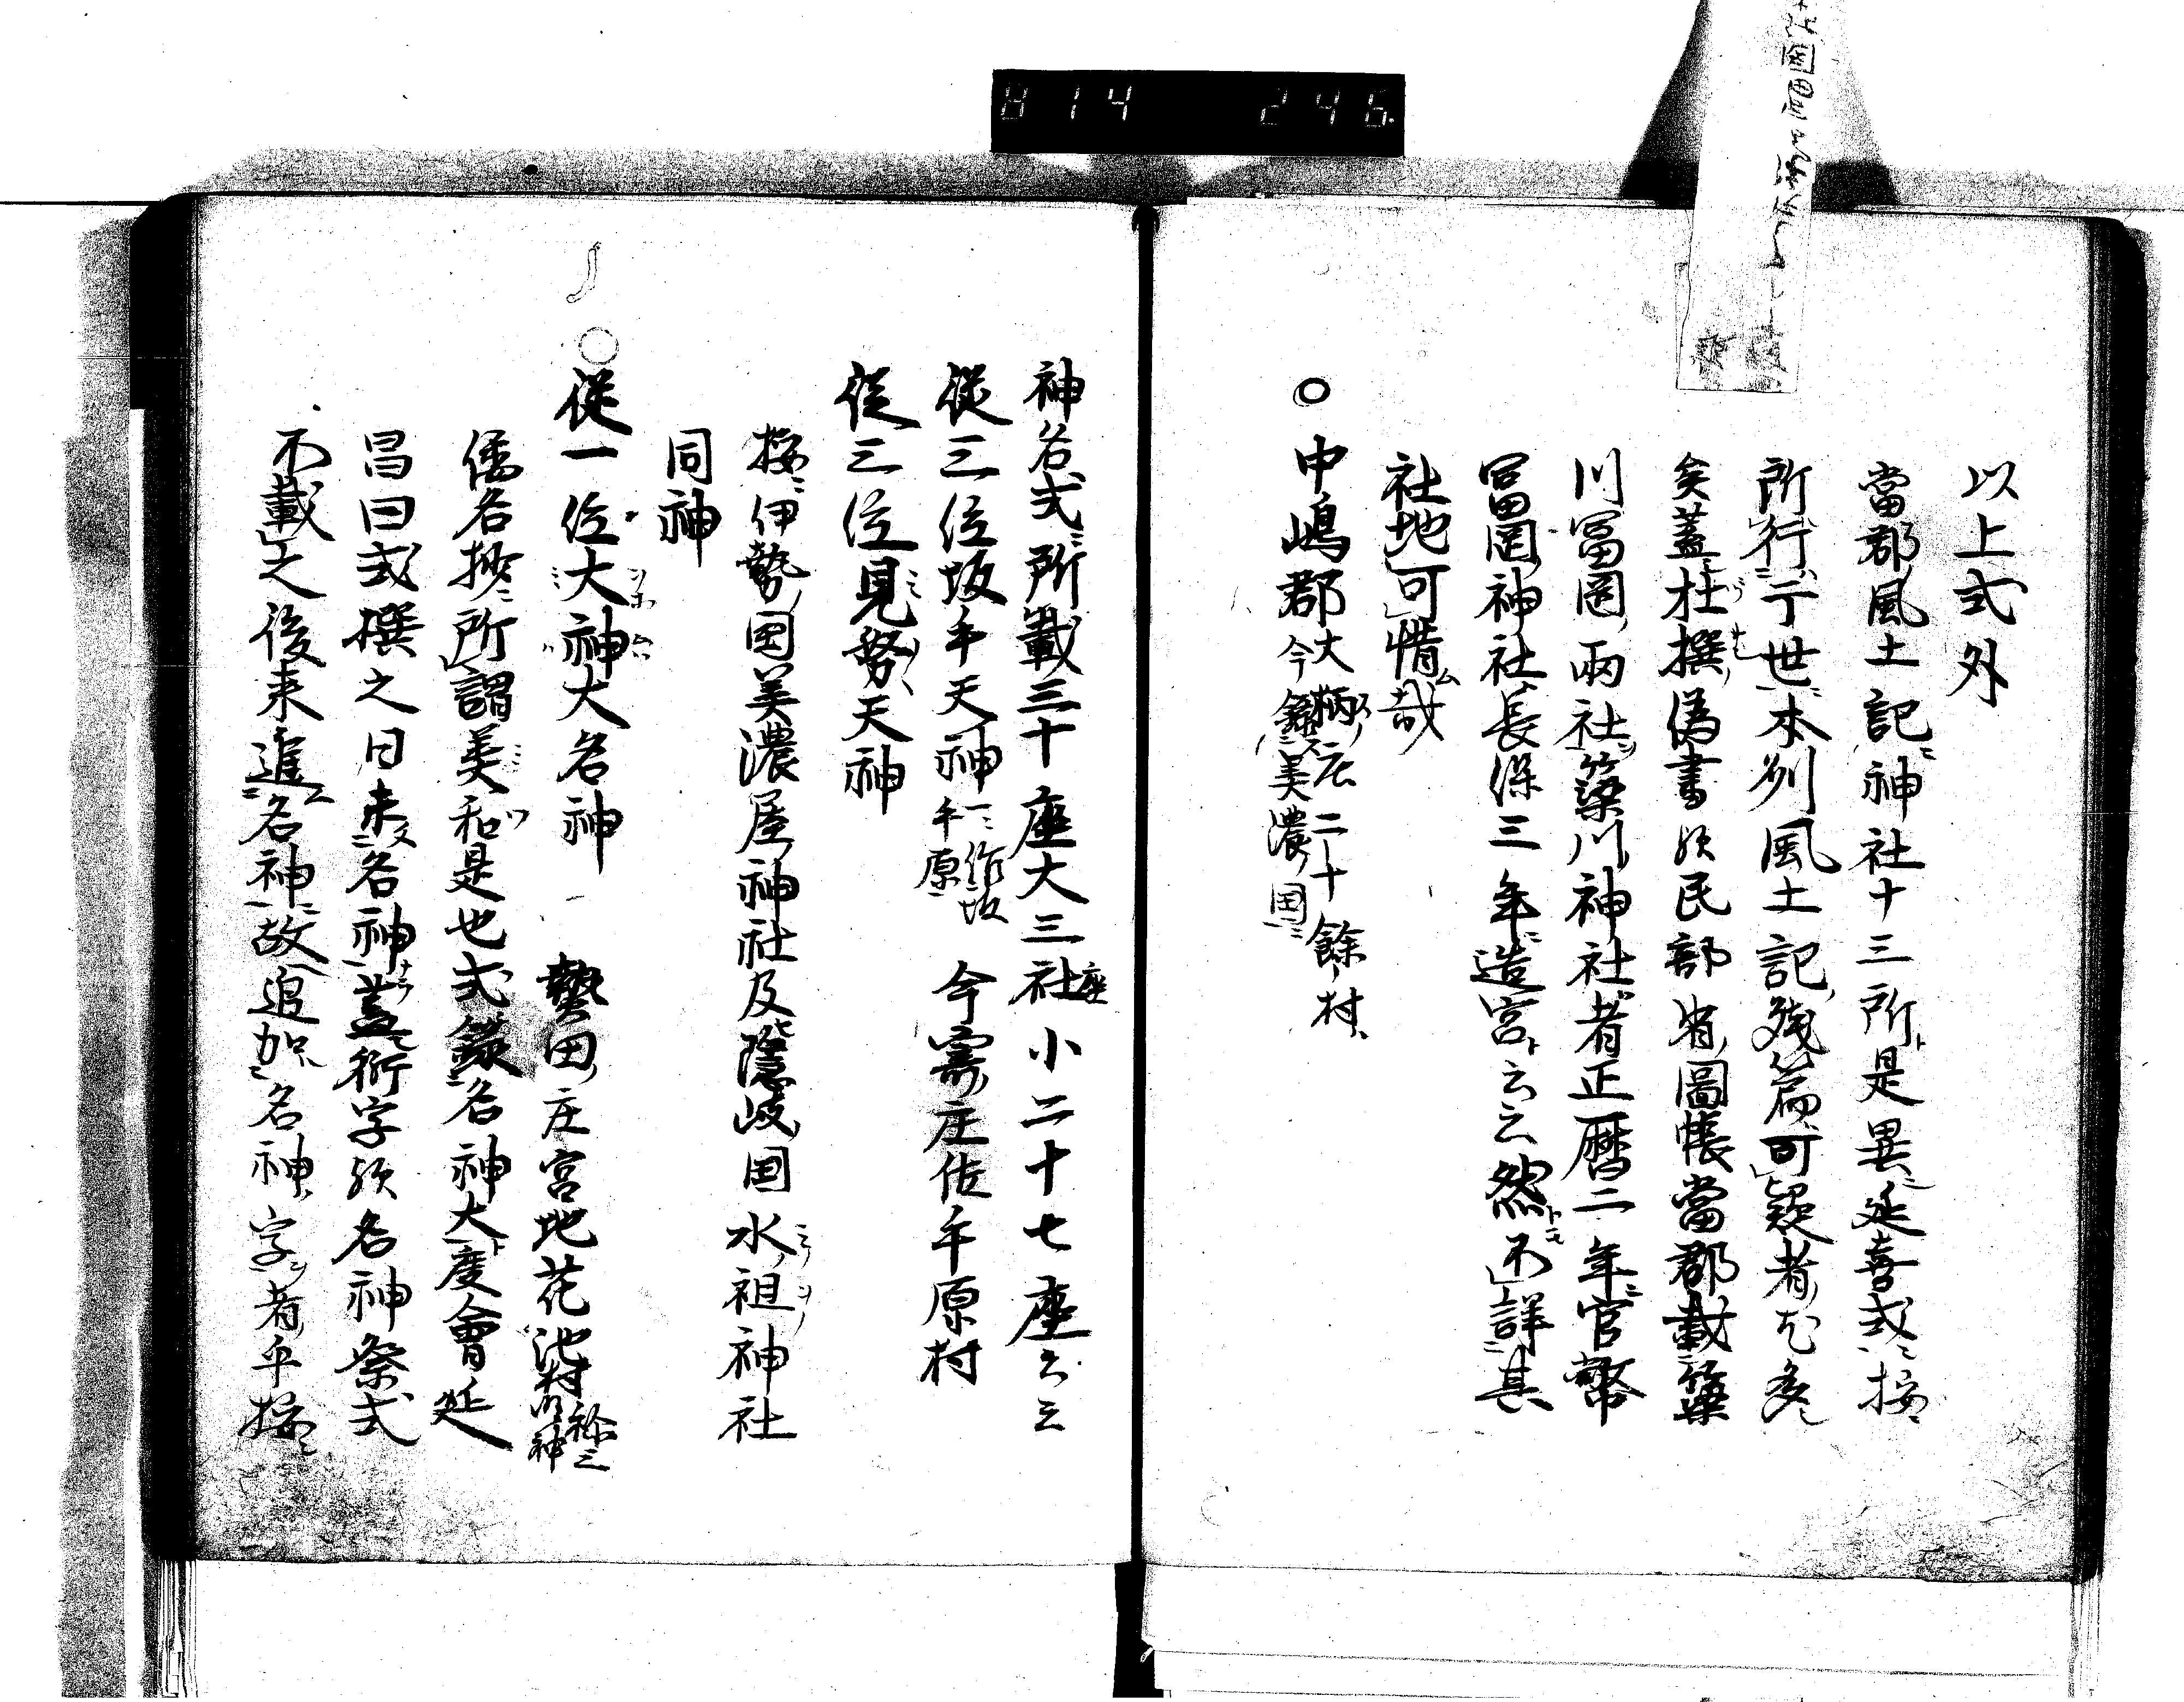 814 246
以上式外
當郡風土記神社十三所是異延喜式按
所行于世本列風土記残篇可疑者尤多
矣蓋杜撰偽書歟民部省圖帳當郡載簗
川冨岡両社簗川神社者正暦二年官幣
冨岡神社長保三年造宮云云然不詳其
社地可惜哉
○中嶋郡 大柄庄二十餘村
今錄美濃国
神名式所載三十座大三社座小二十七座云云
従三位坂手天神 一作坂手原 今寄庄佐手原村
従三位見努天神
按伊勢国美濃屋神社及隠岐国水祖神社
同神
○従一位大神大名神 勢田庄宮地花池村 称三明神
倭名抄所謂美和是也式錄名神大度會延
昌曰式撰之日未名神蓋衍字歟名神祭式
不載之後来進名神故追加名神字者乎按